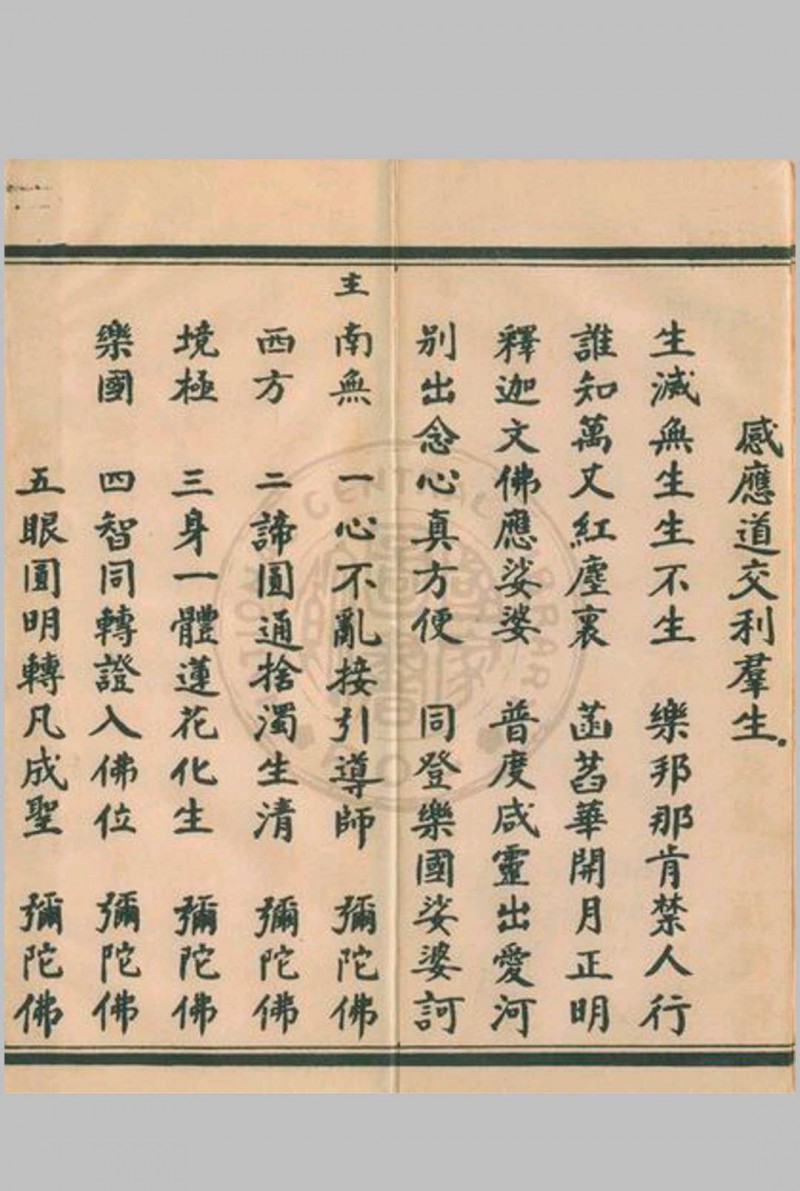 感應道交利羣生。
生滅無生生不生　樂邦那肯禁人行
誰知萬丈紅塵裏　菡萏華開月正明
釋迦文佛應娑婆　普度咸靈出愛河
別出念心真方便　同登樂國娑婆訶
主 南無　一心不亂接引導師　彌陀佛
西方　二諦圓通捨濁生清　彌陀佛
境極　三身一體蓮花化生　彌陀佛
樂國　四智同轉證入佛位　彌陀佛
五眼圓明轉凡成聖　彌陀佛